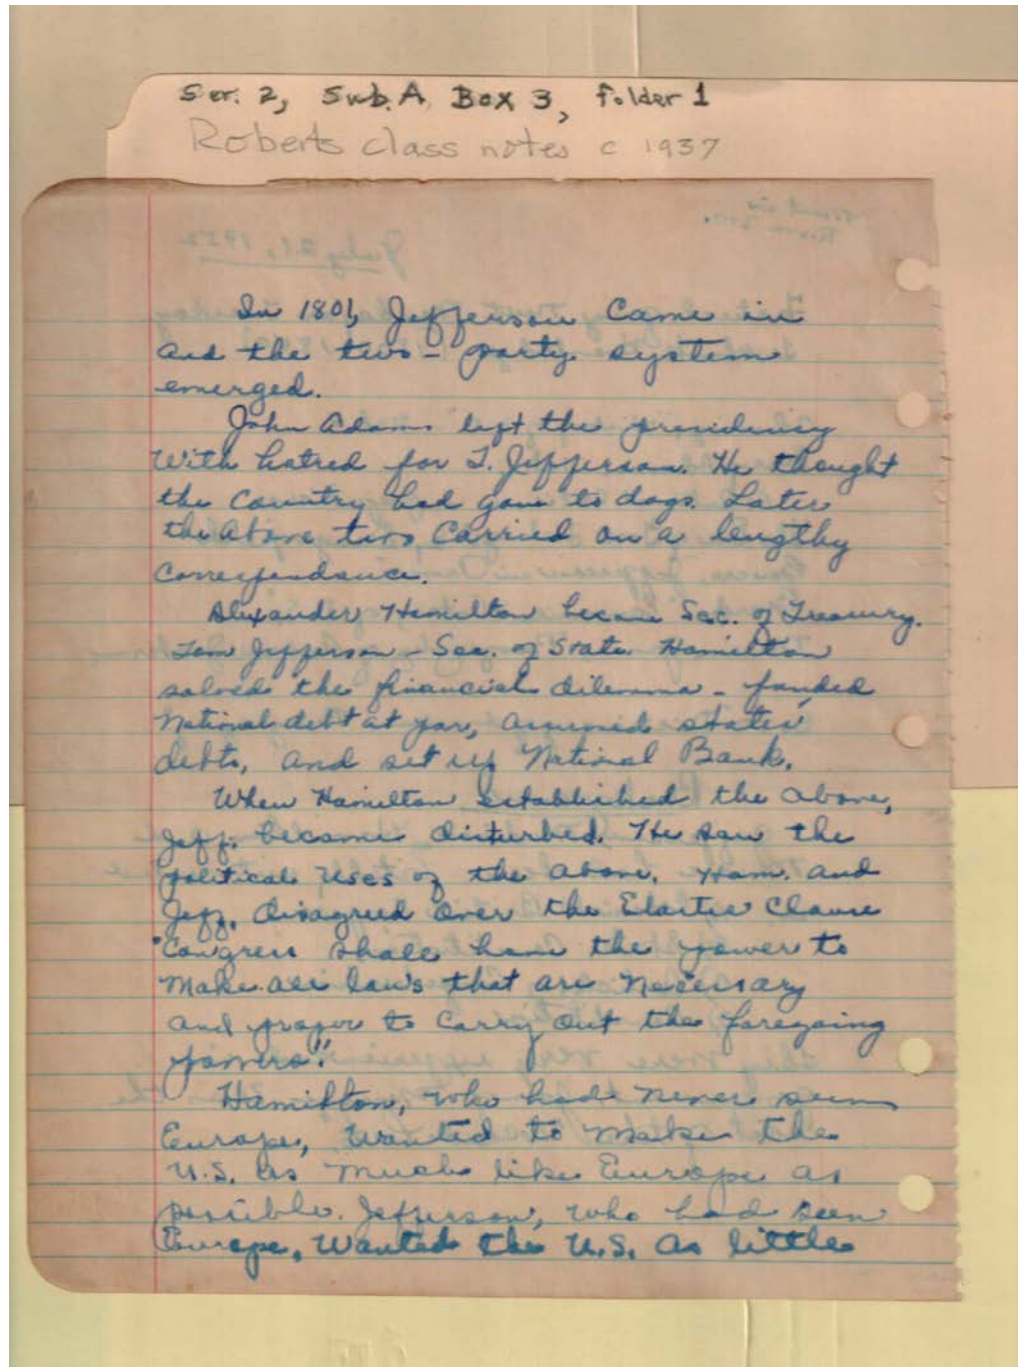 Ser. 2, Sub. A Box 3, folder 1
Roberts class notes c 1937
July 21, 1952
In 1801, Jefferson Came in
and the two-party system
emerged.
John Adams left the presidency
With hatred for T. Jefferson. He thought
the Country had gone to dogs. Later
the above two Carried on a lengthy
Correspondence.
Alexander Hamilton became Sec. of Treasury.
Tom Jefferson - Sec. of State. Hamilton
solved the financial dilemma - funded
National debt at par, assumed states'
debts, and set up National Bank.
When Hamilton established the above,
Jeff. became disturbed. He saw the
political uses of the above. Ham. and
Jeff. disagreed over the Elastic Clause
"Congress shall have the power to
make all laws that are necessary
and proper to Carry out the foregoing
powers."
Hamilton, who had never seen
Europe, Wanted to make the
U.S. as much like Europe as
possible. Jefferson, who had seen
Europe, Wanted the U.S. as little